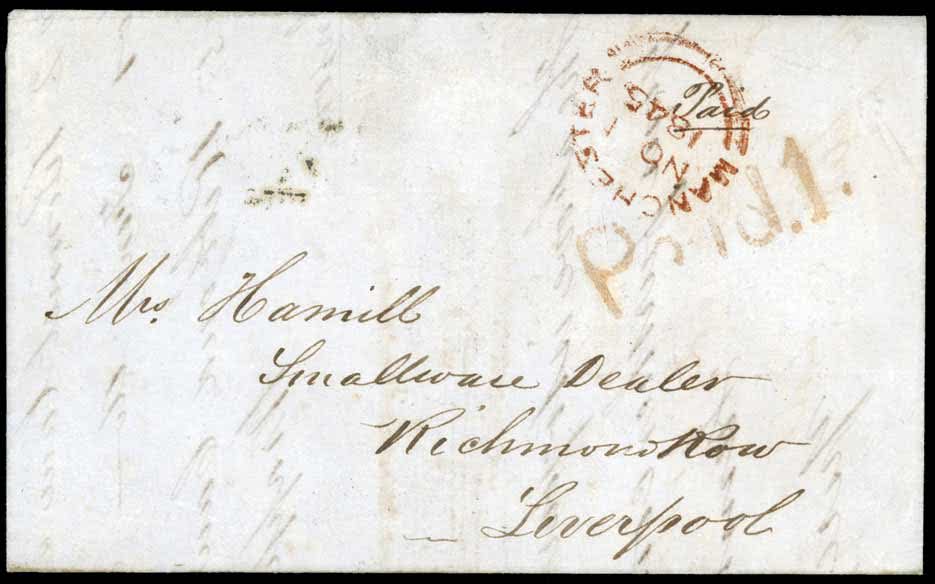 Paid
MANCHESTER
1845
Paid.1.
Mrs. Hamill
Smallware Dealer
Richmond Row
Liverpool